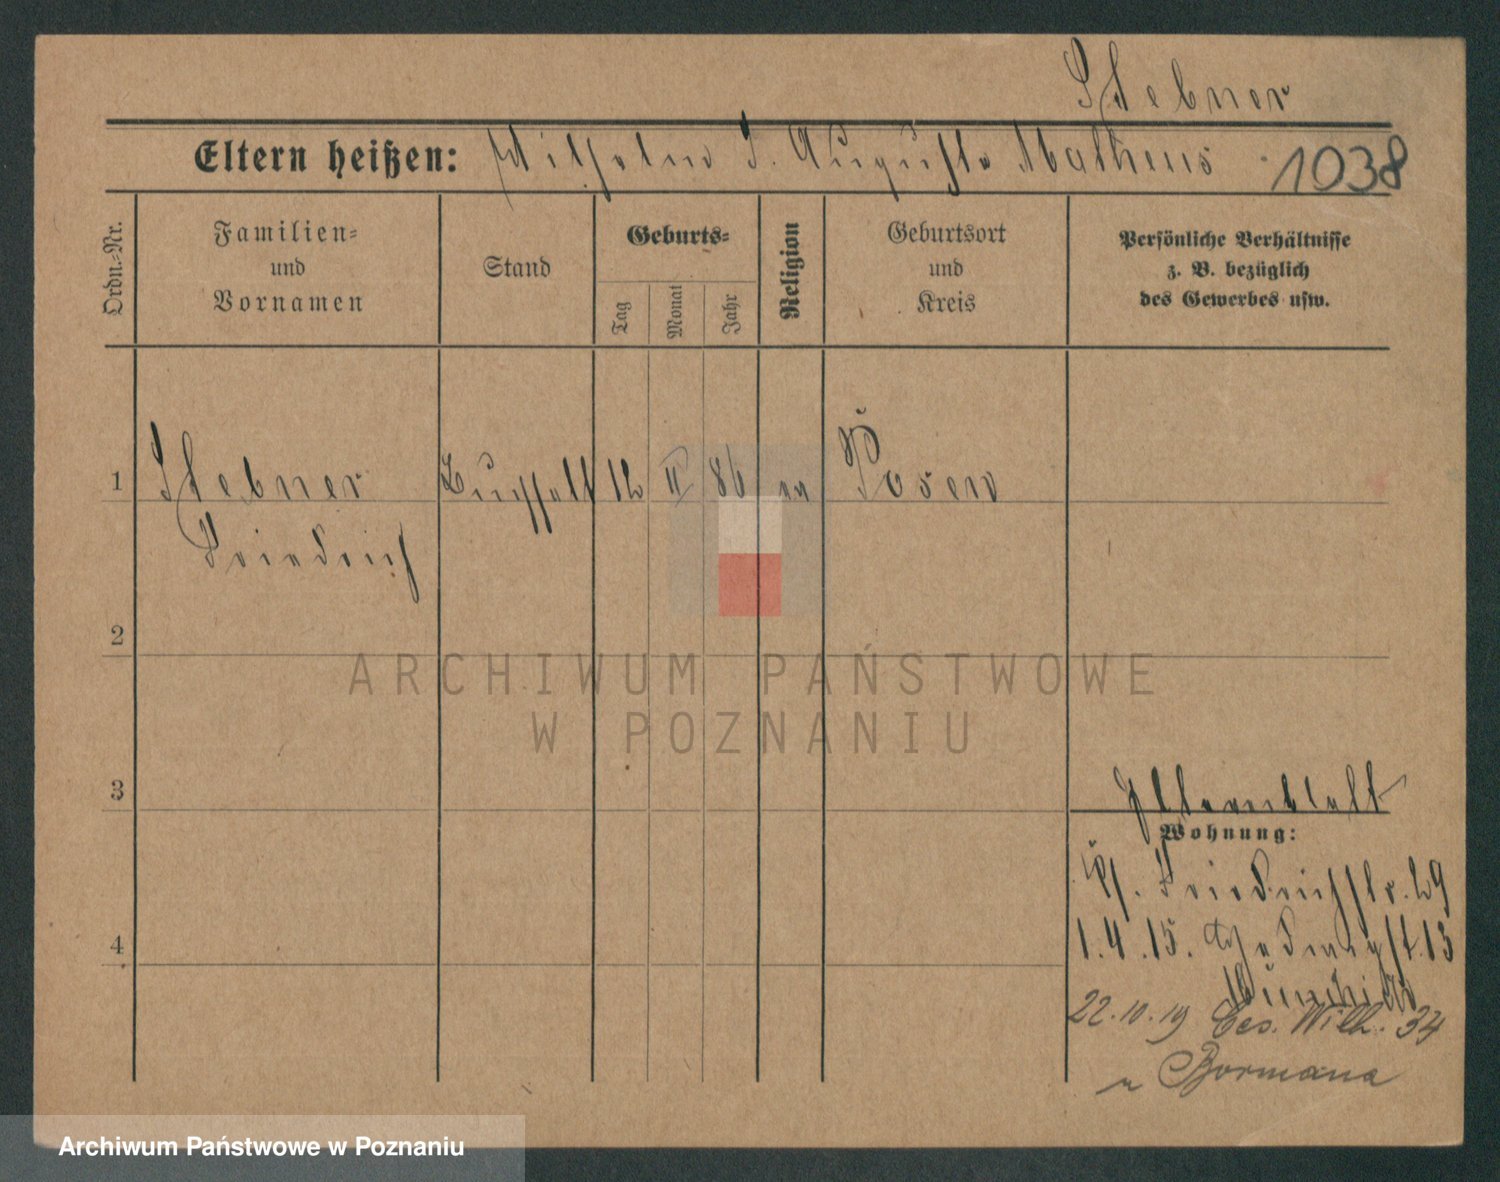 Stebner
Eltern heißen: Wilhelm u. Auguste Matheus 1038
Ordn.-Nr.
Familien-
und
Vornamen
Stand
Geburts-
Tag
Monat
Jahr
Religion
Geburtsort
und
Kreis
Persönliche Verhältnisse
z. B. bezüglich
des Gewerbes usw.
1 Stebner 12 II 86 ev Posen
Friedrich
2
3
4
Elternblatt
Wohnung:
Friedrichstr. 29
1.4.15. Hedwigst. 13
22.10.19 Ces. Wilh. 34
Bormana
ARCHIWUM PAŃSTWOWE
W POZNANIU
Archiwum Państwowe w Poznaniu